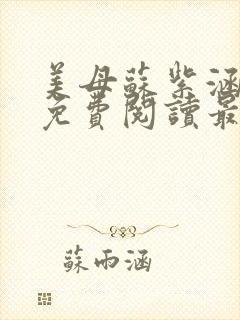 美母蘇紫涵
免費閱讀最
蘇雨涵